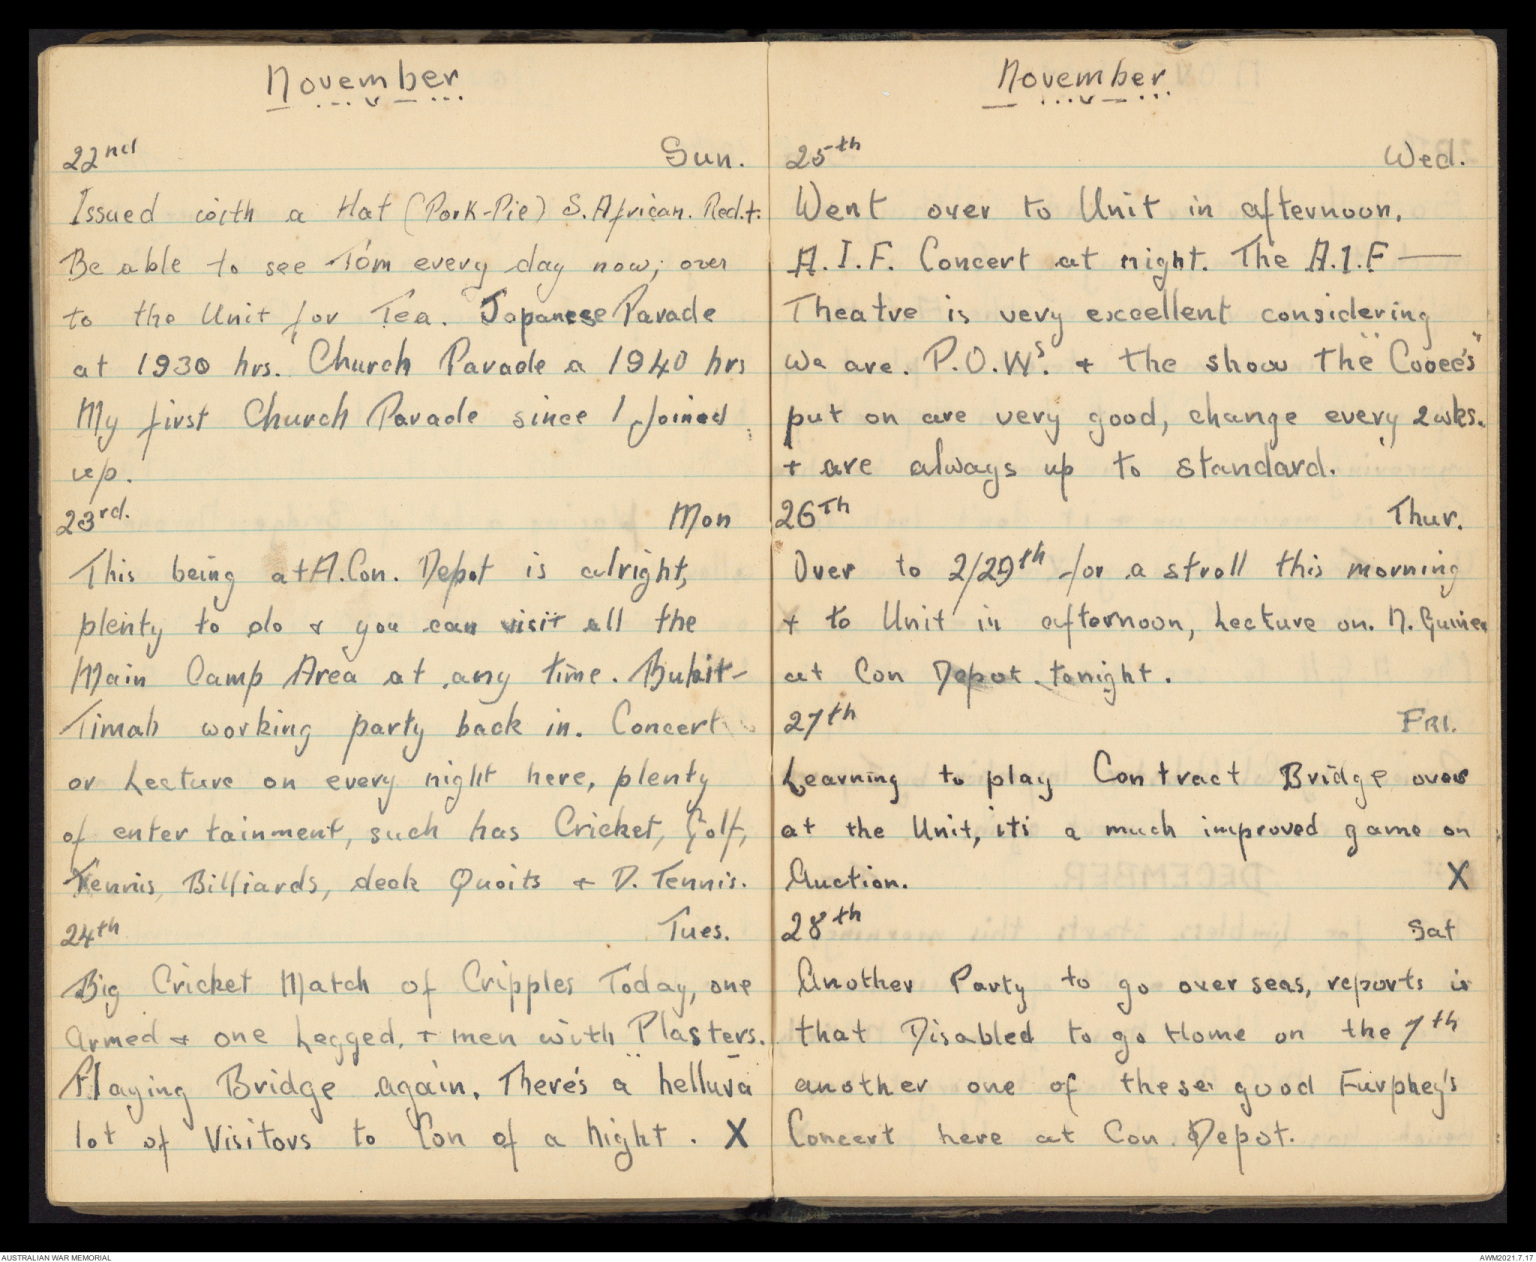 November
22nd Sun.
Issued with a Hat (Pork-Pie) S. African. Red.t.
Be able to see Tom every day now; over
to the Unit for Tea. Japanese Parade
at 1930 hrs. Church Parade a 1940 hrs
My first Church Parade since I Joined
up.
23rd. Mon
This being at A.Con. Depot is alright,
plenty to do & you can visit all the
Main Camp Area at any time. Bukit-
Timah working party back in. Concert
or Lecture on every night here, plenty
of entertainment, such has Cricket, Golf,
Tennis, Billiards, deck Quoits + D. Tennis.
24th Tues.
Big Cricket Match of Cripples Today, one
armed & one Legged, + men with Plasters.
Playing Bridge again. There's a "helluva"
lot of Visitors to Con of a Night. X
November
25th Wed.
Went over to Unit in afternoon.
A.I.F. Concert at night. The A.I.F —
Theatre is very excellent considering
we are. P.O.Ws. + the show the "Cooee's"
put on are very good, change every 2wks.
+ are always up to standard.
26Th Thur.
Over to 2/29th for a stroll this morning
+ to Unit in afternoon, Lecture on. N. Guinea
at Con Depot tonight.
27th FRI.
Learning to play Contract Bridge over
at the Unit, it's a much improved game on
Auction. X
28th Sat
Another Party to go over seas, reports is
that Disabled to go Home on the 7th
another one of these good Furphey's
Concert here at Con. Depot.
AUSTRALIAN WAR MEMORIAL
AWM2021.7.17